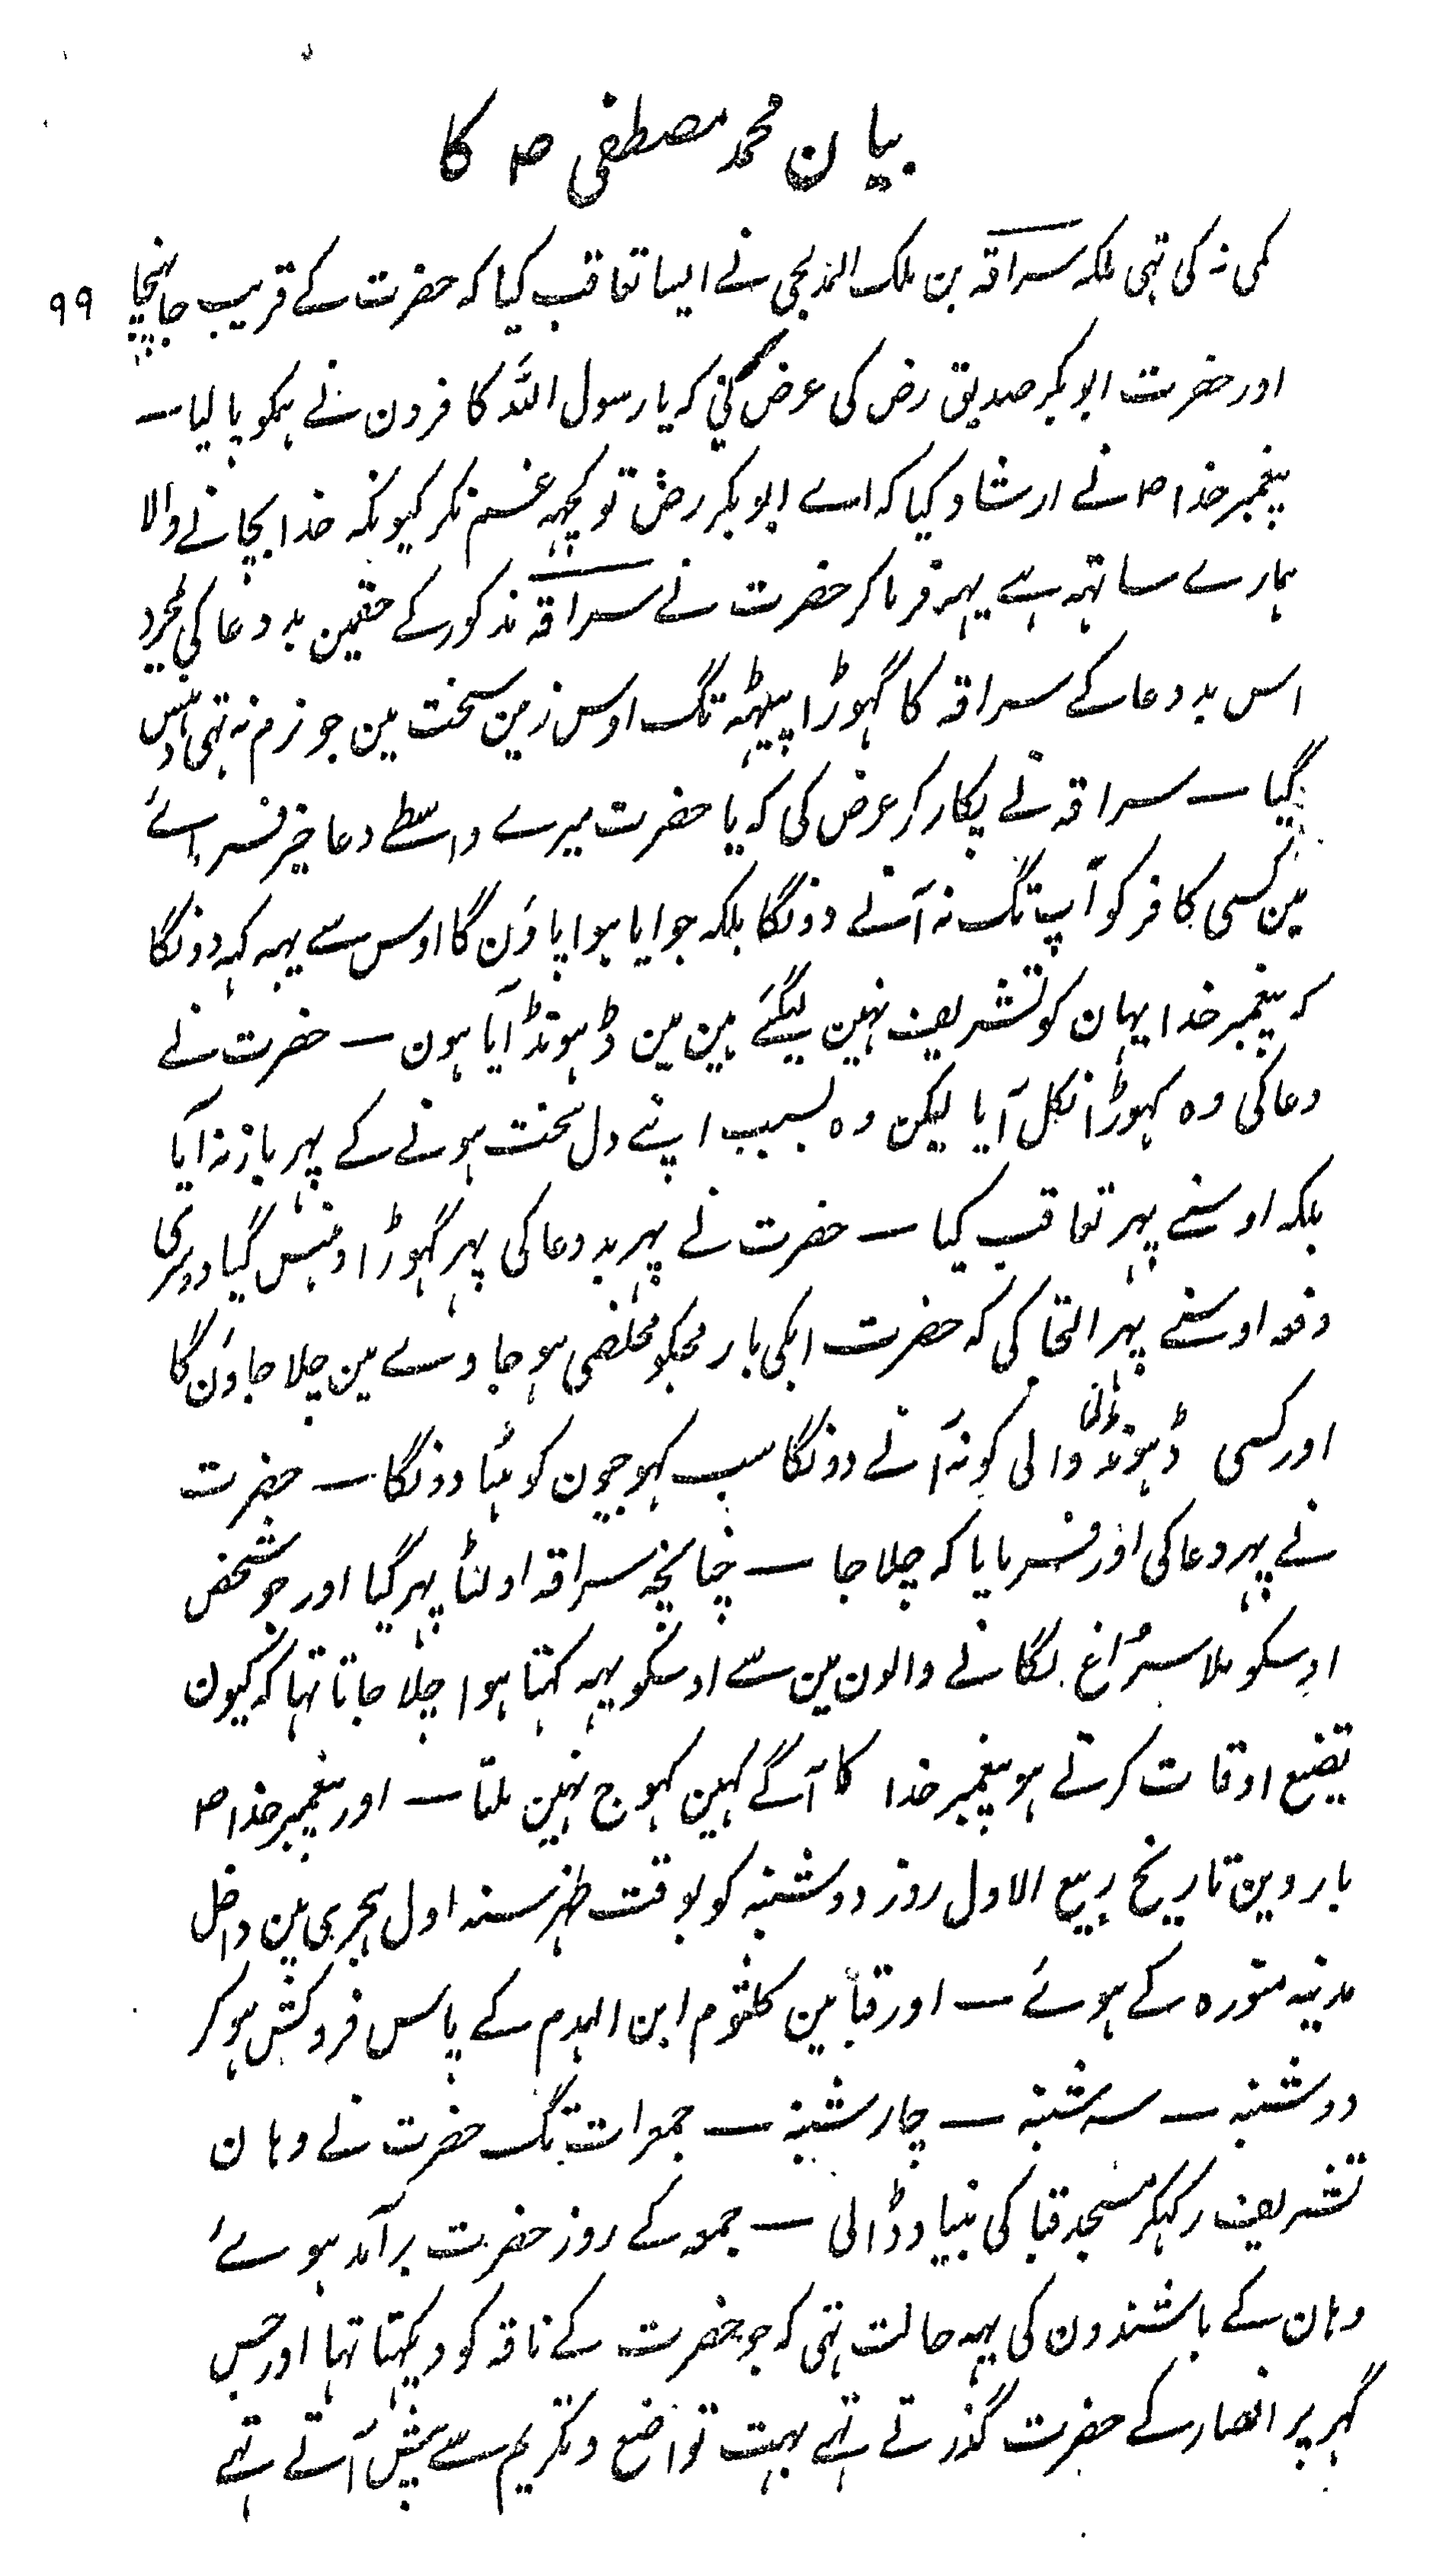 بیان محمد مصطفی ص کا
کمی نہ کی تہی بلکہ سراقہ بن ملک المدلجی نے ایسا تعاقب کیا کہ حضرت کے قریب جا پہنچا
۹۹
اور حضرت ابوبکر صدیق رض کی عرض کی کہ یا رسول اللہ کافرون نے ہمکو پا لیا ـ
پیغمبر خدا ص نے ارشاد کیا کہ اے ابوبکر رض تو کچہہ غم نکر کیونکہ خدا بچانے والا
ہمارے ساتہہ ہے یہہ فرما کر حضرت نے سراقہ مذکور کے حقمین بد دعا کی بمجرد
اس بد دعا کے سراقہ کا گہوڑا پیٹہہ تگ اوس زمین سخت مین جو نرم نہ تہی دہنس
گیا ـ سراقہ نے پکار کر عرض کی کہ یا حضرت میرے واسطے دعا خیر فرمائے
مین کسی کافر کو آپ تگ نہ آنے دونگا بلکہ جو ایا ہوا پاؤن گا اوس سے یہہ کہہ دونگا
کہ پیغمبر خدا یہان کو تشریف نہین لیگئے ہین مین ڈہونڈ آیا ہون ـ حضرت نے
دعا کی وہ کہوڑا نکل آیا لیکن وہ بسبب اپنے دل سخت ہونے کے پہر باز نہ آیا
بلکہ اوسنے پہر تعاقب کیا ـ حضرت نے پہر بد دعا کی پہر گہوڑا دہنس گیا دوسری
دفعہ اوسنے پہر التجا کی کہ حضرت ابکی بار مجکو مخلصی ہو جاوے مین چلا جاؤن گا
اور کسی ڈہونڈنی والی کو نہ آنے دونگا سب کہوجیون کو ہٹا دونگا ـ حضرت
نے پہر دعا کی اور فرمایا کہ چلا جا ـ چنانچہ سراقہ اولٹا پہر گیا اور جو شخص
اوسکو ملا سراغ لگانے والون مین سے اوسکو یہہ کہتا ہوا چلا جاتا تہا کہ کیون
تضیع اوقات کرتے ہو پیغمبر خدا کا آگے کہین کہوج نہین ملتا ـ اور پیغمبر خدا ص
باروین تاریخ ربیع الاول روز دوشنبہ کو بوقت ظہر سنہ اول ہجری مین داخل
مدینہ منورہ کے ہوئے ـ اور قبا مین کلثوم ابن الہدم کے پاس فروکش ہو کر
دوشنبہ ـ سہ شنبہ ـ چار شنبہ ـ جمعرات تگ حضرت نے وہان
تشریف رکہکر مسجد قبا کی بنیاد ڈالی ـ جمعہ کے روز حضرت برآمد ہوئے
وہان کے باشندون کی یہہ حالت تہی کہ جو حضرت کے ناقہ کو دیکہتا تہا اور جس
گہر پر انصار کے حضرت گذرتے تہے بہت تواضع و تکریم سے پیش آتے تہے